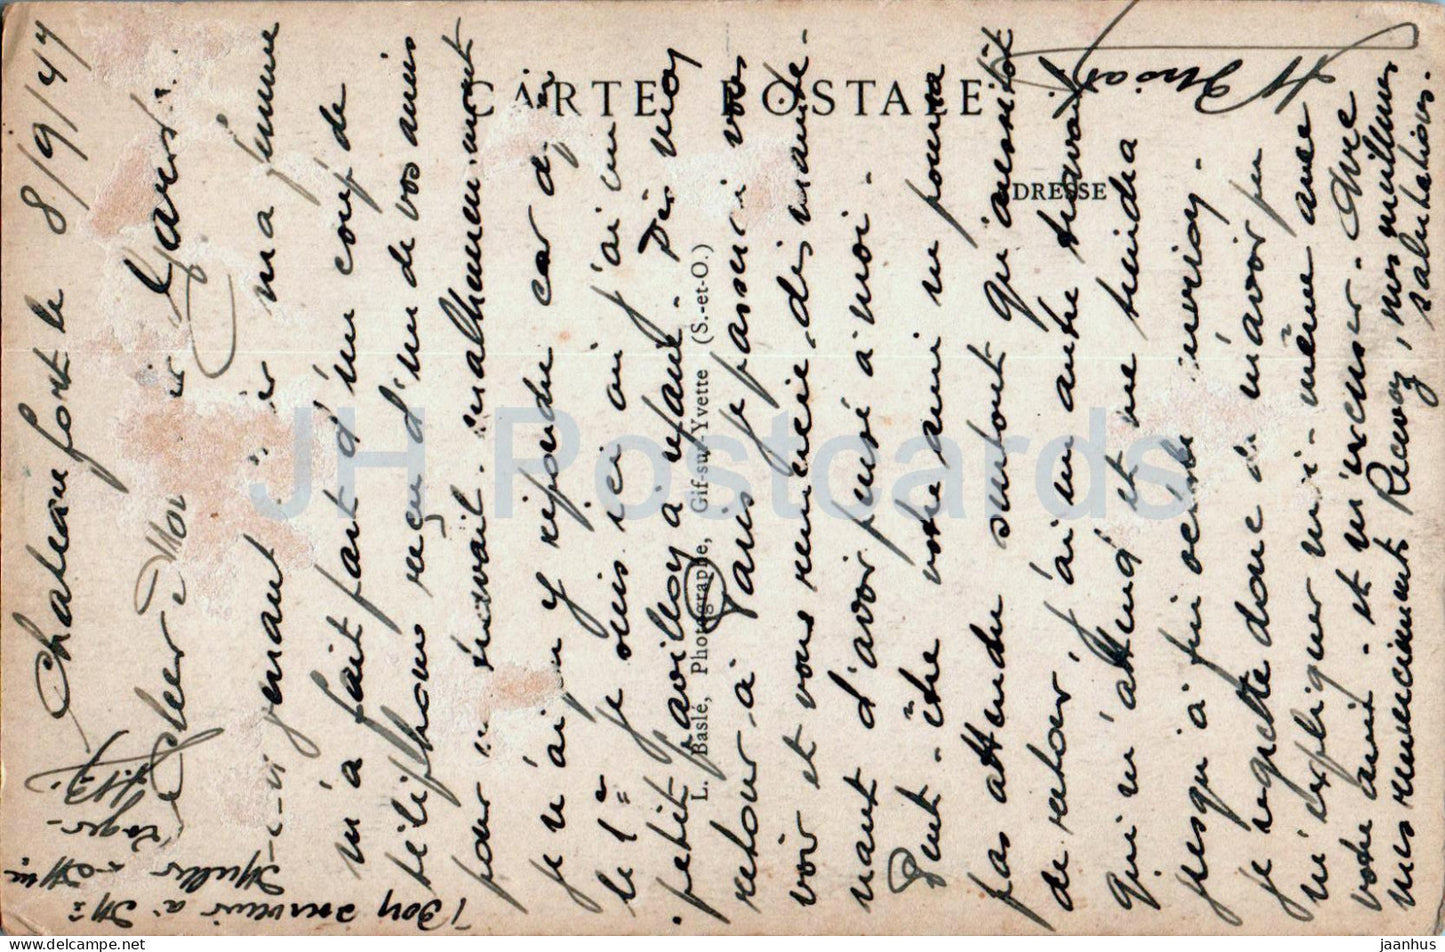 Chateaufort le 8/9/47
Cher Monsieur Yaris
ma femme
m'a fait part d'un coup de
téléphone reçu d'un de vos amis
pour travail. malheureusement
je n'ai pu y répondre car
le 1er je suis ici où j'ai un
petit pavillon à refaire. Dès mon
retour à Paris je passerai vous
voir et vous remercie dès mainte-
nant d'avoir pensé à moi.
Peut-être votre ami ne pourra
pas attendre surtout qu'aussitôt
de retour, j'ai un autre travail
qui m'attend et me tiendra
jusqu'à fin octobre environ.
je regrette donc de n'avoir pu
m'expliquer moi-même avec
votre ami. et m'excuser. Avec
mes remerciements Recevez, mes meilleures
salutations.
Bon souvenir à Mr
Muller & Mme
Roger
CARTE POSTALE
ADRESSE
L. Basle, Photographe, Gif-sur-Yvette (S.-et-O.)
JH Postcards
HIPPOSTCARD
jaanhus